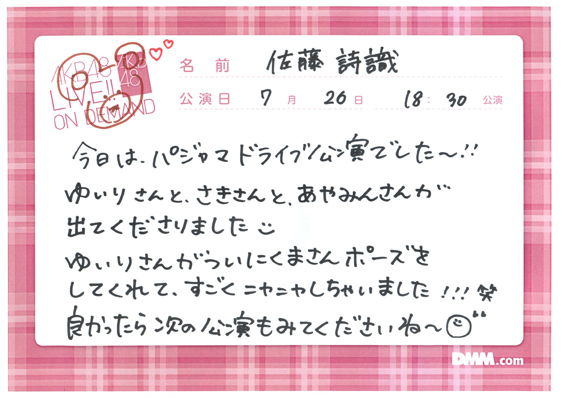 AKB48
AKB
48
LIVE!!
ON DEMAND
名 前 佐藤 詩識
公演日 7 月 26 日 18:30 公演
今日は、パジャマドライブ公演でした〜!!
ゆいりさんと、さきさんと、あやみんさんが
出てくださりました
ゆいりさんがついにくまさんポーズを
してくれて、すごくニヤニヤしちゃいました!!! 笑
良かったら次の公演もみてくださいね〜
DMM.com